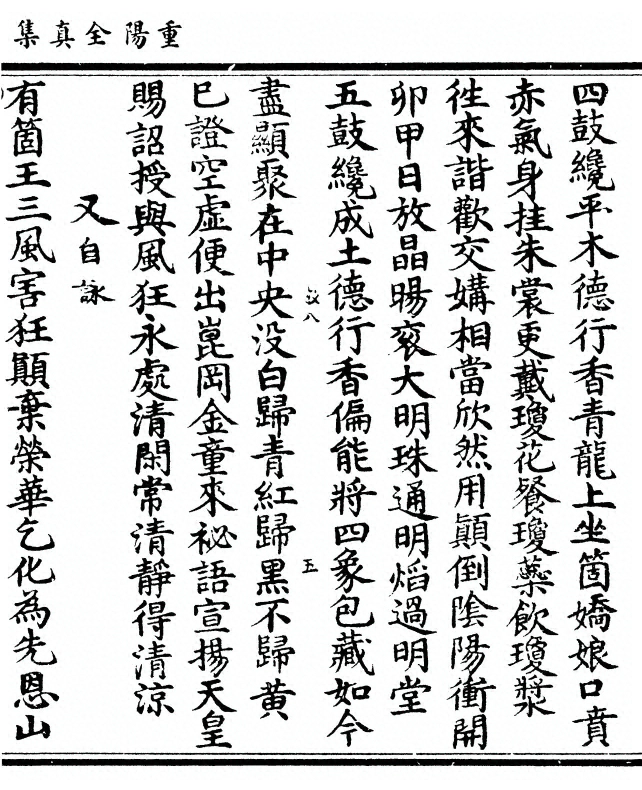 重陽全真集
四鼓纔平木德行香青龍上坐箇嬌娘口賁
赤氣身挂朱裳更戴瓊花餐瓊蘂飲瓊漿
徃來諧歡交媾相當欣然用顛倒陰陽衝開
卯甲日放晶暘衮大明珠通明熖過明堂
五鼓纔成土德行香偏能將四象包藏如今
盡顯聚在中央没白歸青紅歸黑不歸黄
巳證空虛便出崑岡金童來祕語宣揚天皇
賜詔授與風狂永處清閑常清靜得清涼
又自詠
有箇王三風害狂顛棄榮華乞化為先恩山
八
五